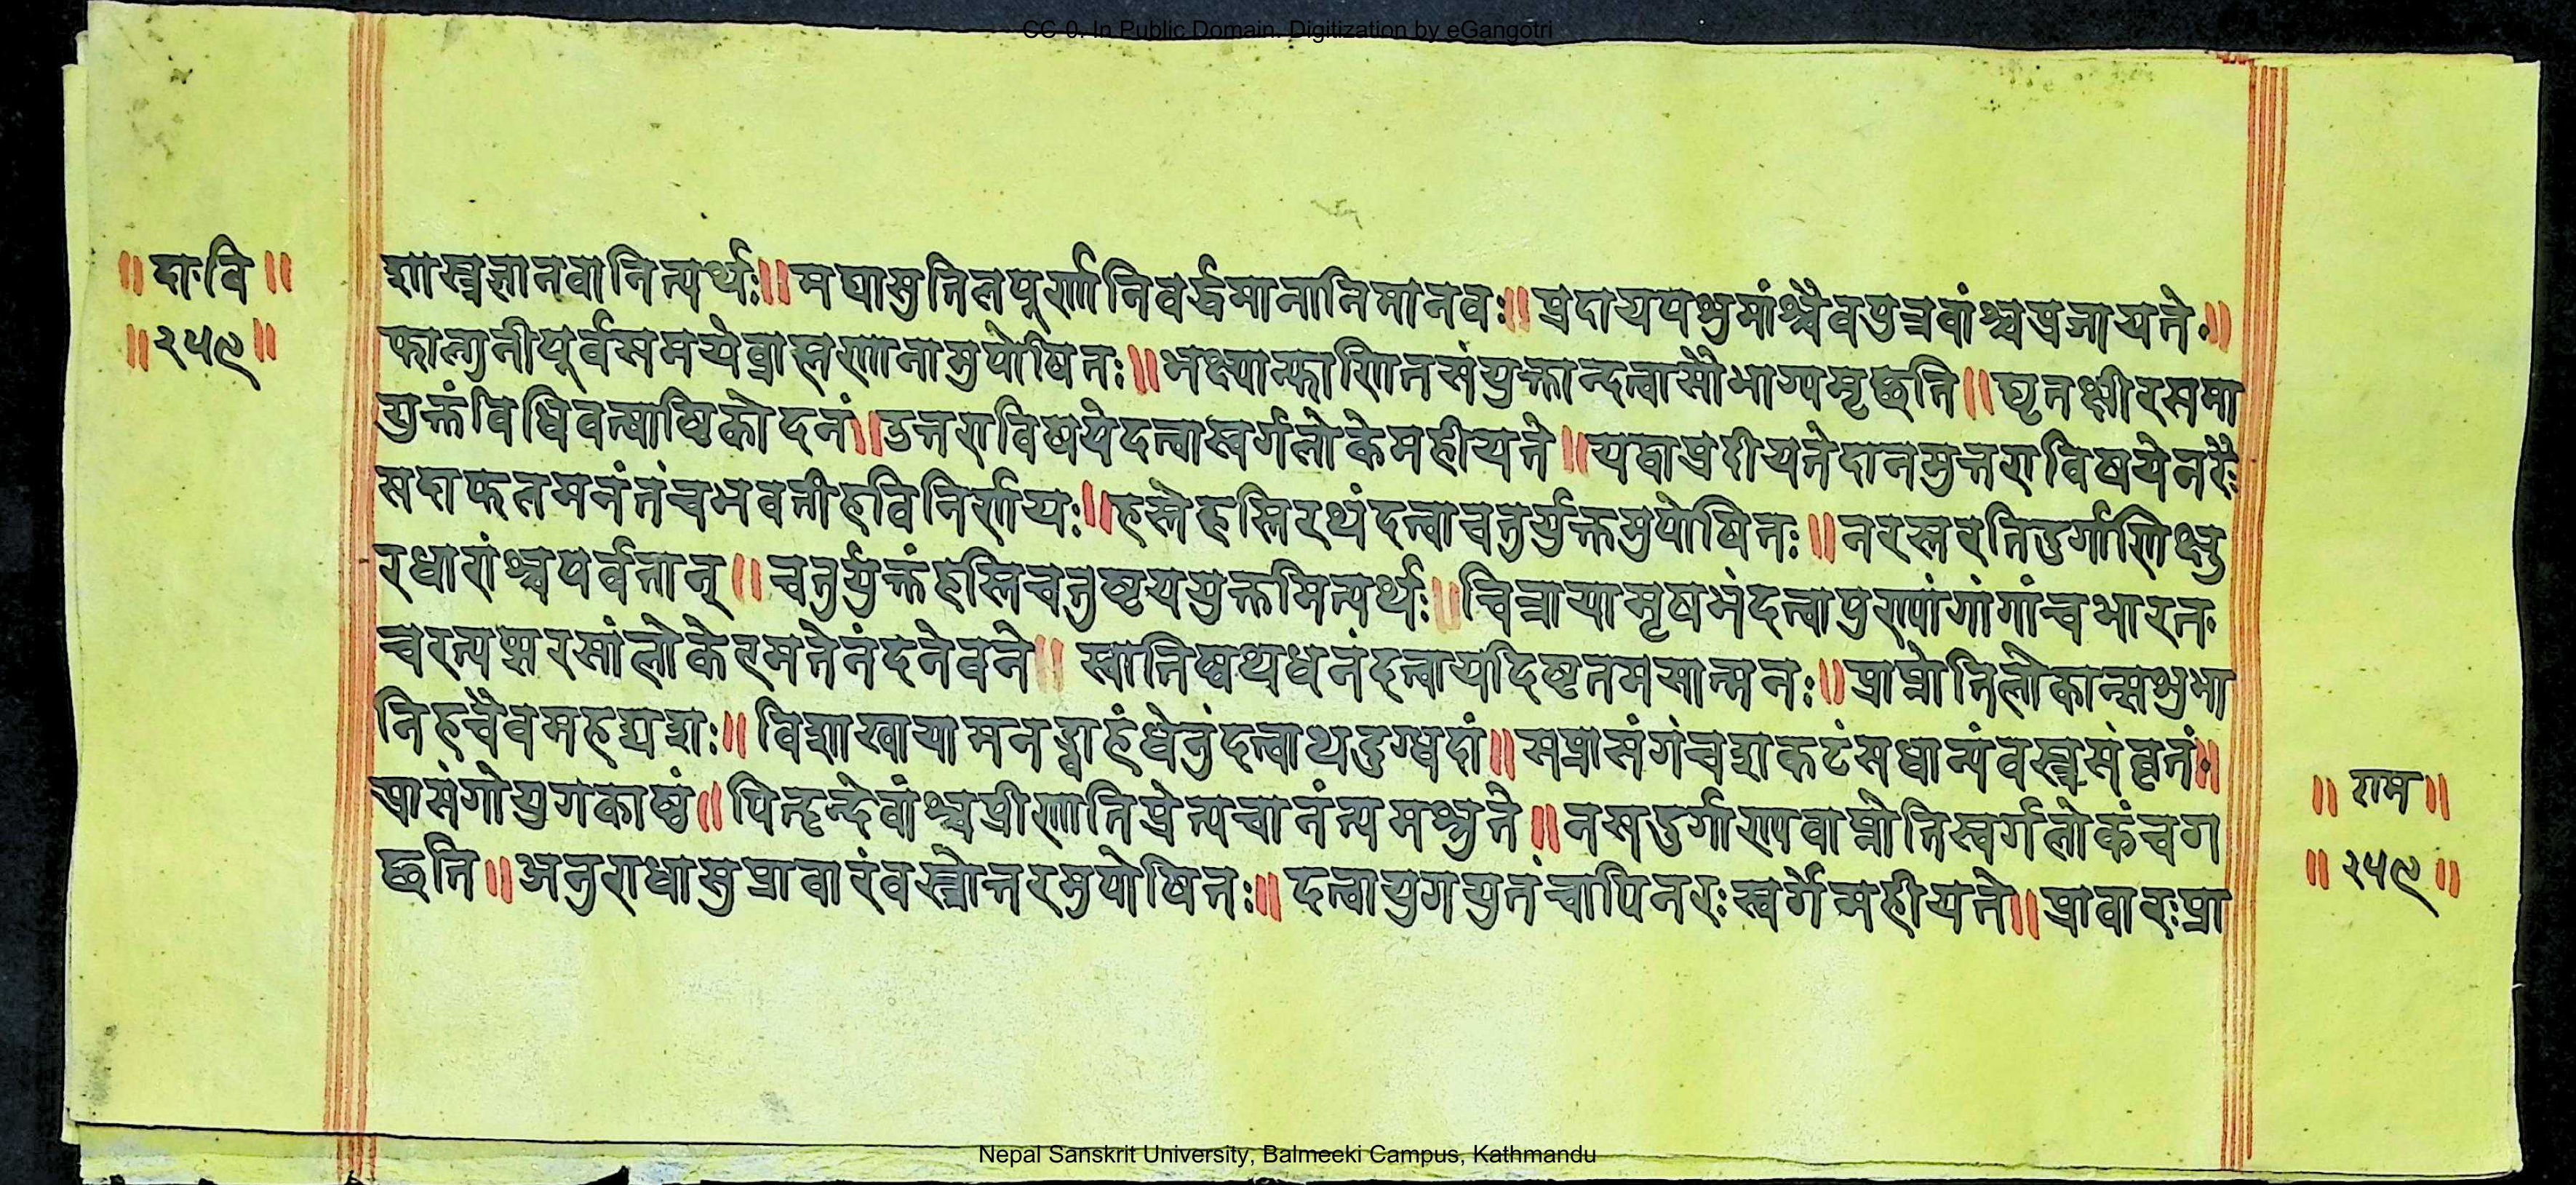 CC-0. In Public Domain. Digitization by eGangotri
॥ दा॰वि ॥
॥ २५९ ॥
शास्त्रज्ञानवानित्यर्थः ॥ मघासुतिलपूर्णानिवर्द्धमानानिमानवः ॥ प्रदायपशुमांश्चैवपुत्रवांश्चप्रजायते ॥
फाल्गुनीपूर्वसमयेब्राह्मणानामुपोषितः ॥ भक्ष्यान्फाणितसंयुक्तान्दत्वासौभाग्यमृछति ॥ घृतक्षीरसमा
युक्तंविधिवत्षाष्टिकोदनं ॥ उत्तराविषयेदत्वास्वर्गलोकेमहीयते ॥ यद्यप्रदीयतेदानमुत्तराविषयेनरैः
सदाफलमनंतंचभवतीहविनिर्णयः ॥ हस्तेहस्तिरथंदत्वाचतुर्युक्तमुपोषितः ॥ नरस्तरतिदुर्गाणिक्षु
रधारांश्चपर्वतान् ॥ चतुर्युक्तंहस्तिचतुष्टययुक्तमित्यर्थः ॥ चित्रायामृषभंदत्वापुण्यांगांगांचभारत
चरत्यप्सरसांलोकेरमतेनंदनेवने ॥ स्वातिष्वथधनंदत्वायदिष्टतमसात्मनः ॥ प्राप्नोतिलोकान्सशुभा
निहचैवमहद्यशः ॥ विशाखायामनड्वाहंधेनुंदत्वाथदुग्धदां ॥ सप्रासंगंचशकटंसधान्यंवस्त्रसंवृतं ॥
प्रासंगोयुगकाष्ठं ॥ पितृन्देवांश्चप्रीणातिप्रेत्यचानंत्यमश्नुते ॥ नसदुर्गाण्यवाप्नोतिस्वर्गलोकंचग
छति ॥ अनुराधासुप्रावारंवस्त्रोत्तरमुपोषितः ॥ दत्वायुगयुतंचापिनरःस्वर्गेमहीयते ॥ प्रावारःप्रा
॥ राम ॥
॥ २५९ ॥
Nepal Sanskrit University, Balmeeki Campus, Kathmandu